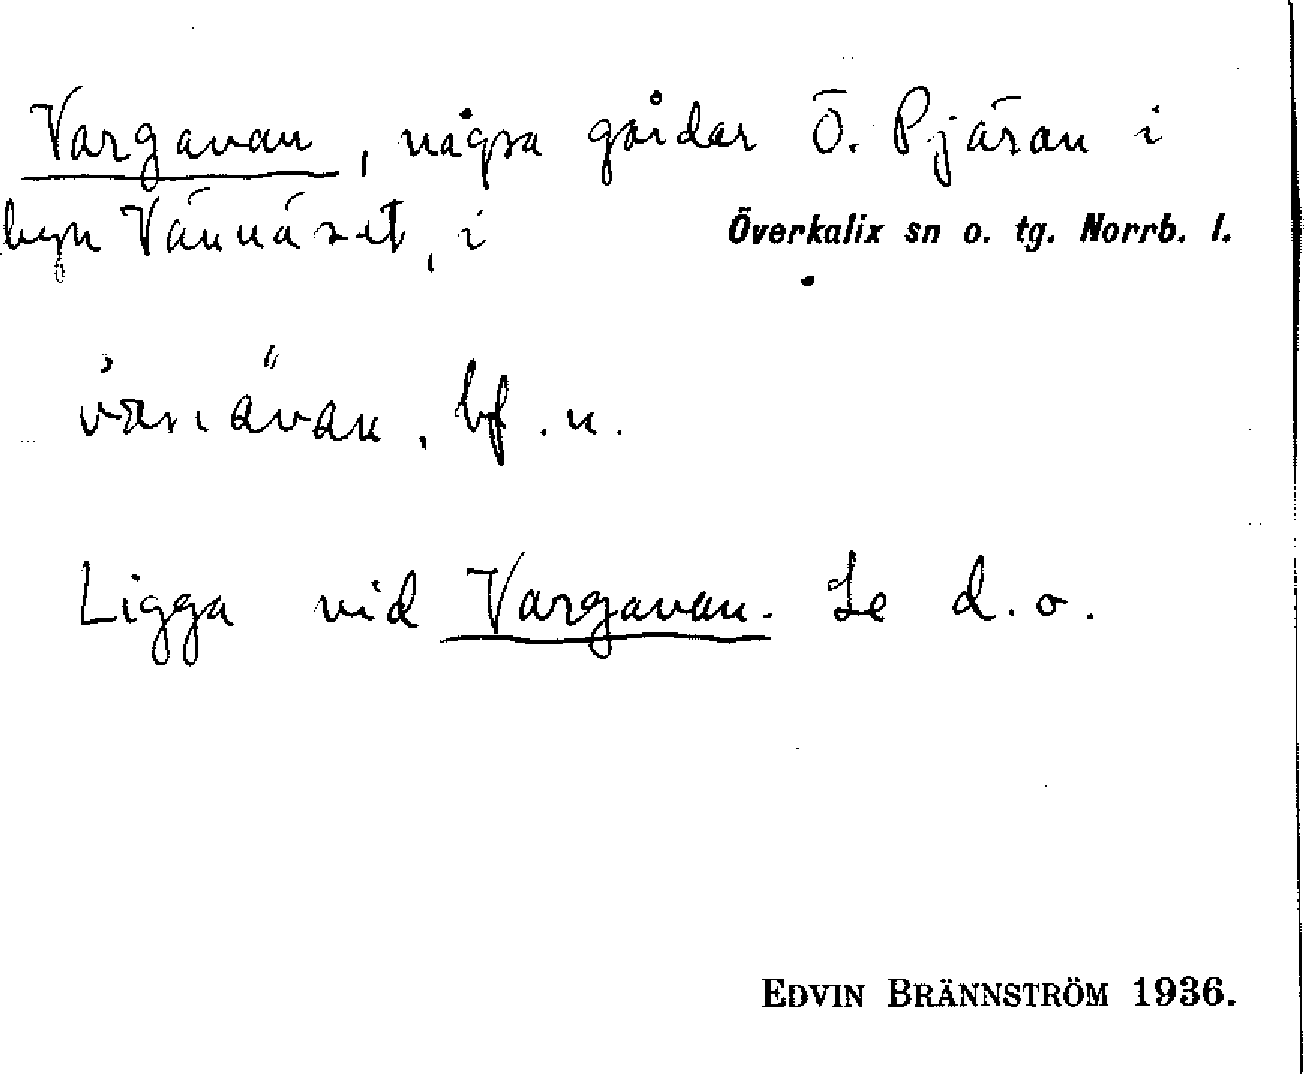 Vargavan, några gårdar Ö. Pjäsan i
byn Vännäset, i Överkalix sn o. tg. Norrb. l.
bf. n.
Ligga vid Vargavan. Se d. o.
EDVIN BRÄNNSTRÖM 1936.